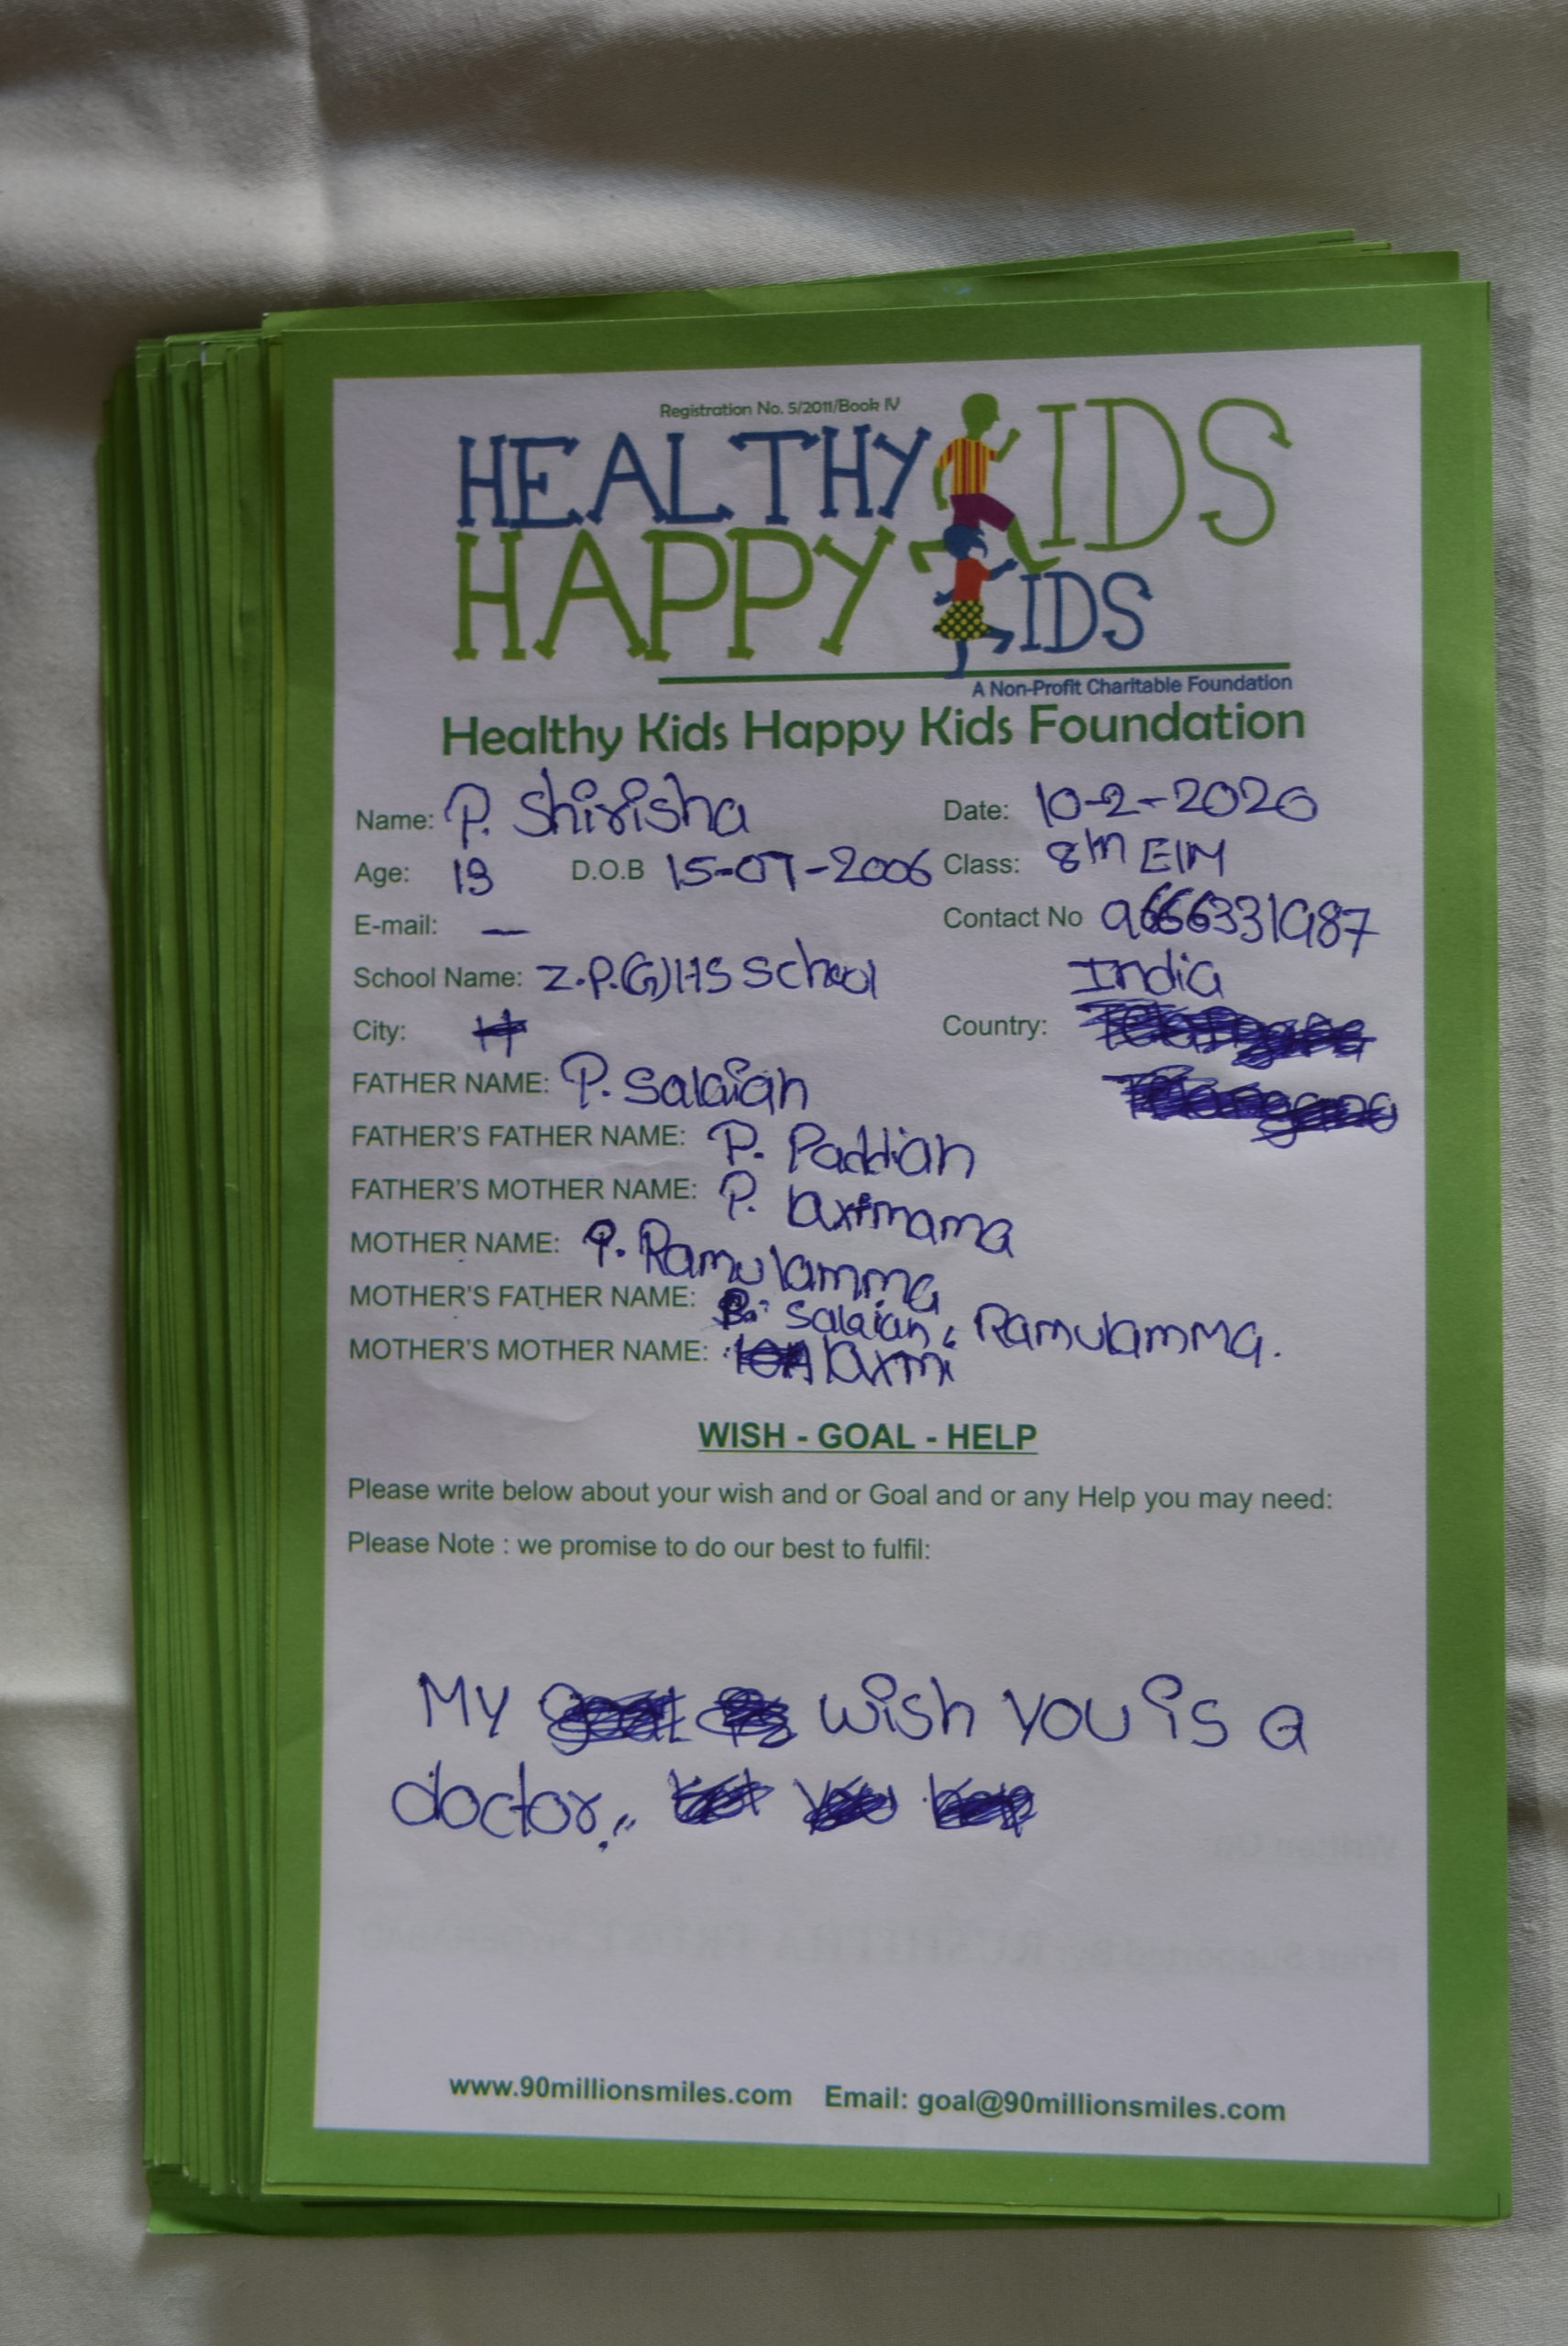 Registration No. 5/2011/Book IV
HEALTHY KIDS
HAPPY KIDS
A Non-Profit Charitable Foundation
Healthy Kids Happy Kids Foundation
Name: P. Shirisha Date: 10-2-2020
Age: 13 D.O.B 15-07-2006 Class: 8th E/M
E-mail: — Contact No 9666331987
School Name: Z.P.(G)HS School India
City: Country:
FATHER NAME: P. Salaiah
FATHER'S FATHER NAME: P. Paddiah
FATHER'S MOTHER NAME: P. laxmama
MOTHER NAME: P. Ramulamma
MOTHER'S FATHER NAME: Salaiah, Ramulamma.
MOTHER'S MOTHER NAME: laxmi
WISH - GOAL - HELP
Please write below about your wish and or Goal and or any Help you may need:
Please Note : we promise to do our best to fulfil:
My wish you is a
doctor.
www.90millionsmiles.com Email: goal@90millionsmiles.com